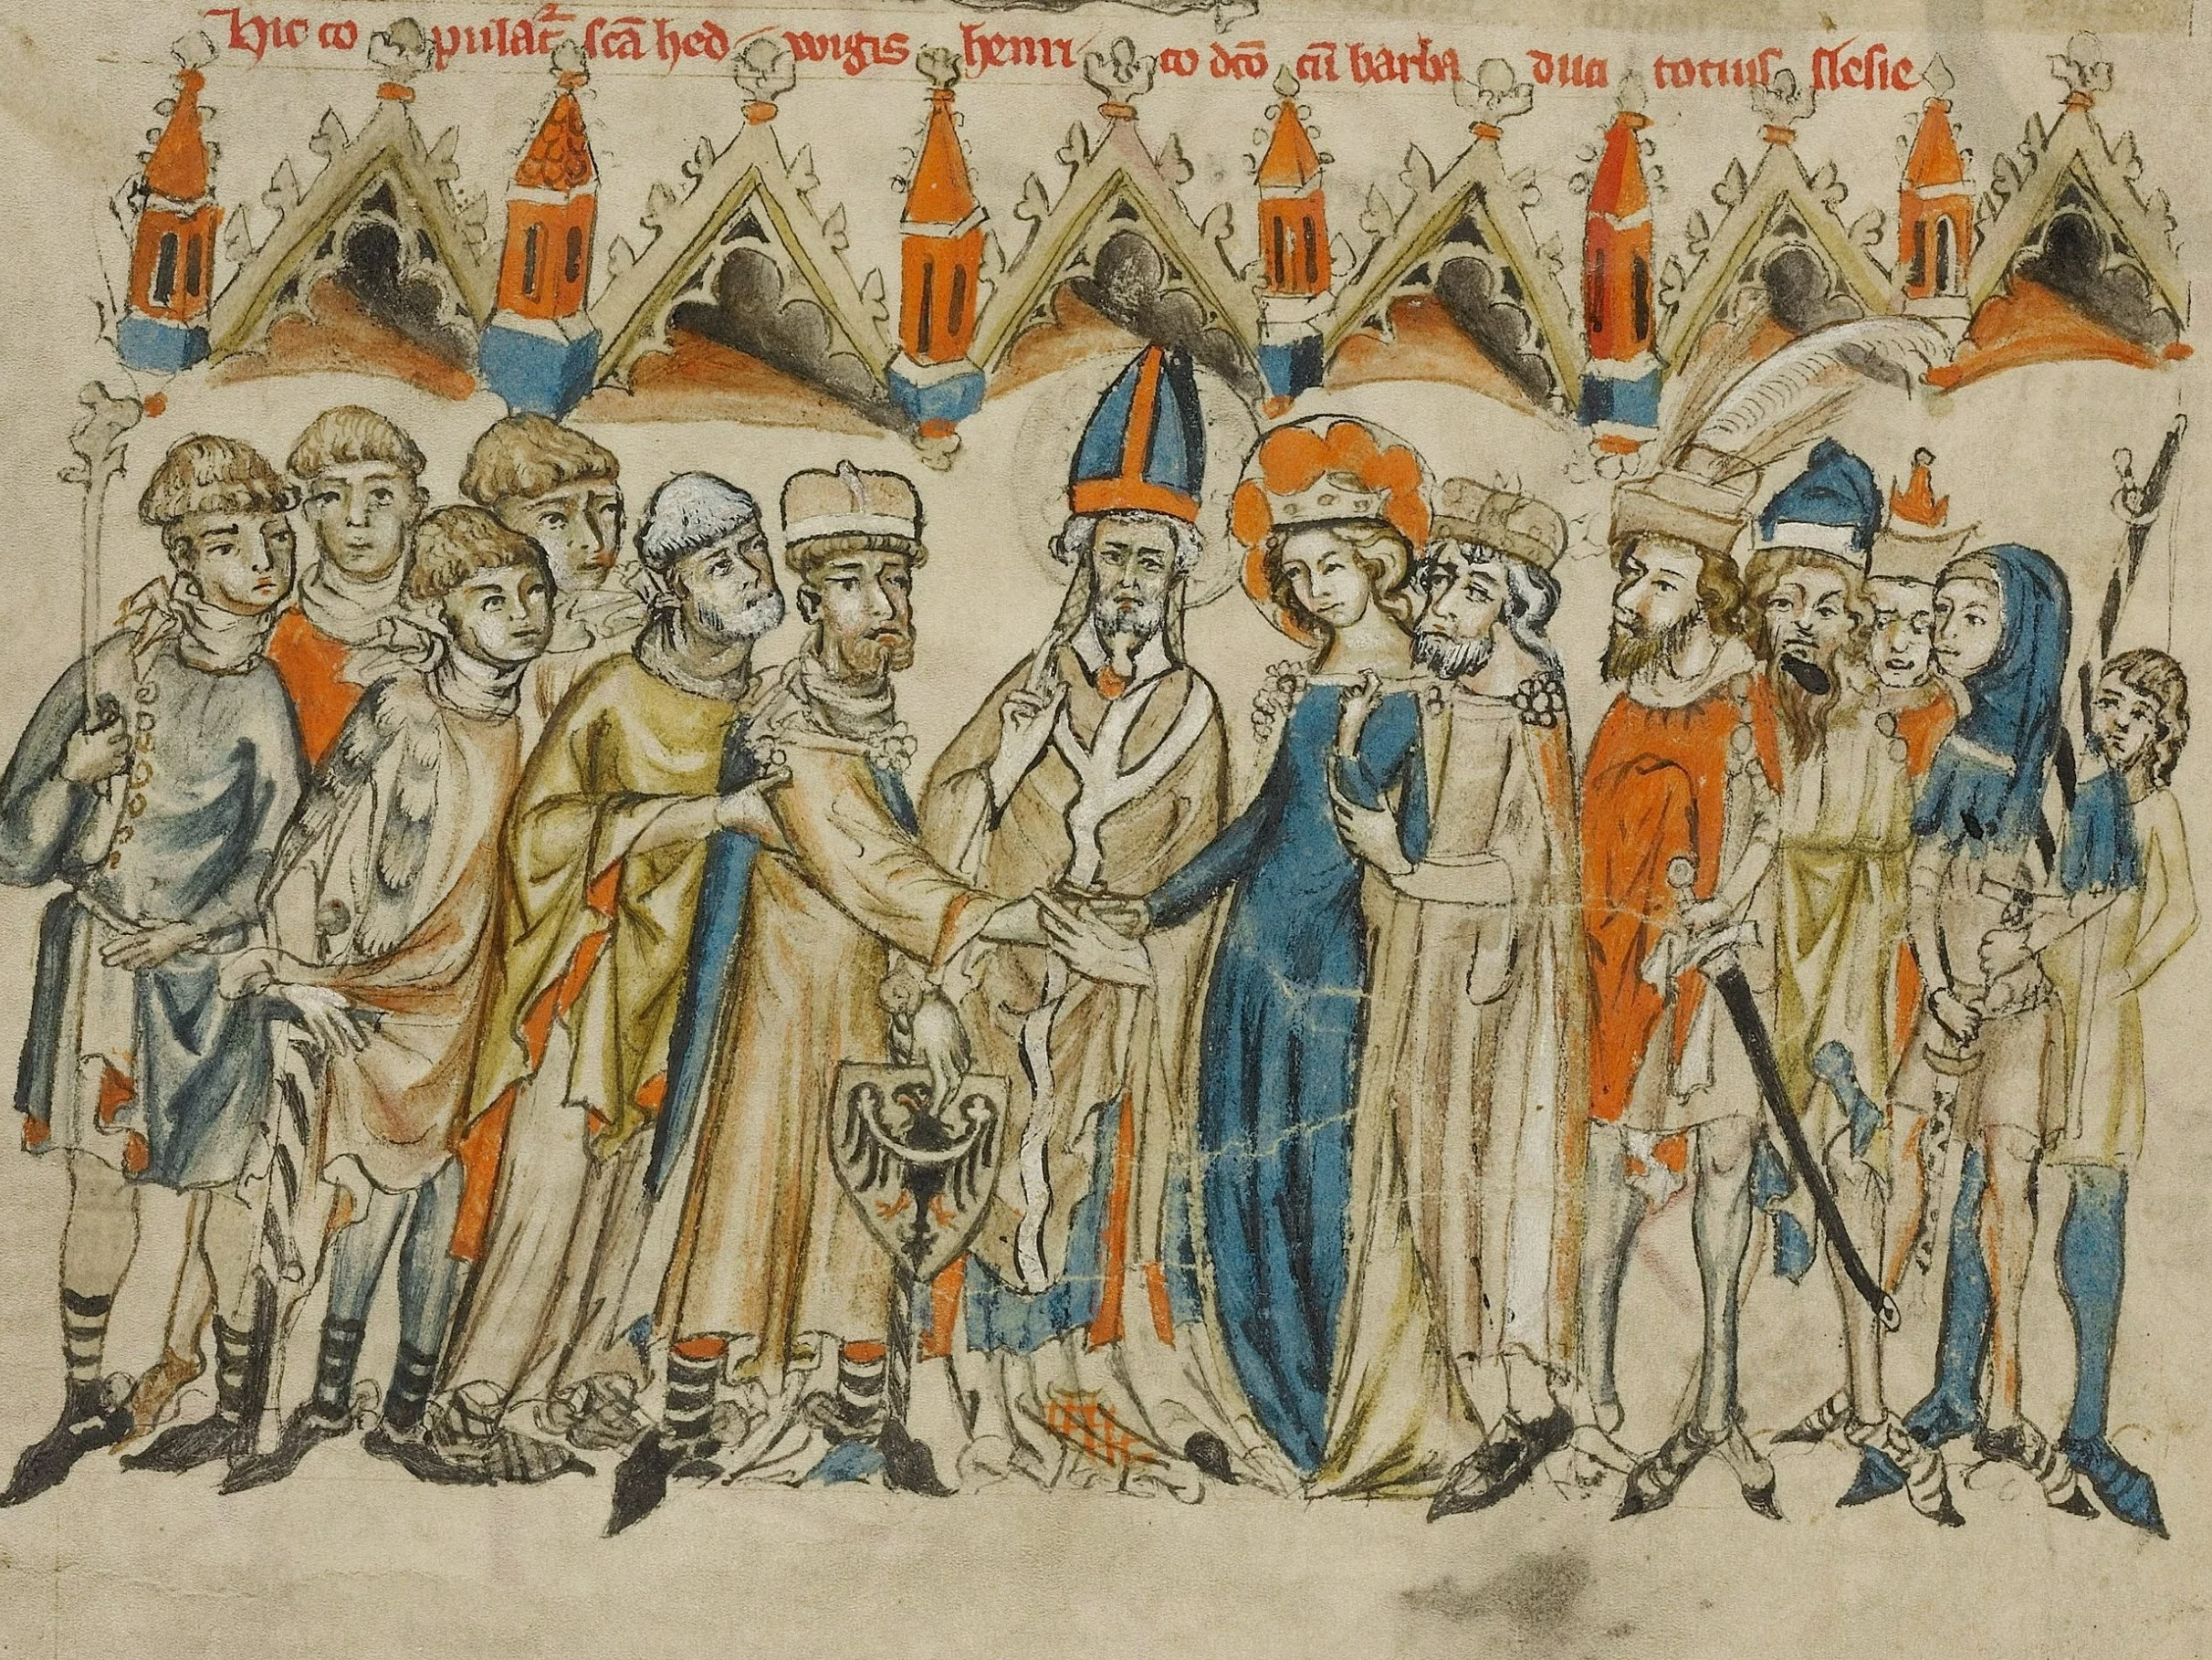 Hic copulat̄ᷣ sc̄a hedwigis henrico dc̄o cū barba duci totius slesie